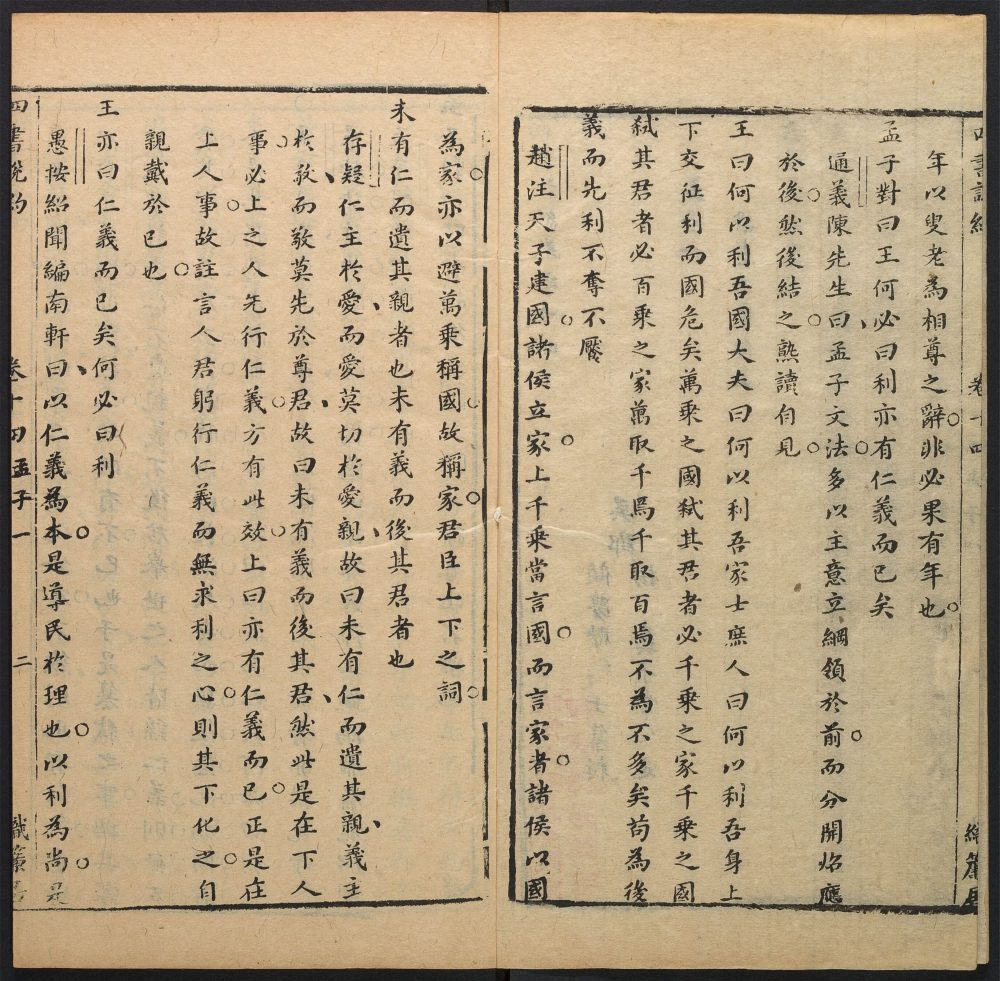 四書說約 卷十四 織簾居
年以叟老為相尊之辭非必果有年也
孟子對曰王何必曰利亦有仁義而已矣
通義陳先生曰孟子文法多以主意立綱領於前而分開炤應
於後然後結之熟讀自見
王曰何以利吾國大夫曰何以利吾家士庶人曰何以利吾身上
下交征利而國危矣萬乘之國弒其君者必千乘之家千乘之國
弒其君者必百乘之家萬取千焉千取百焉不為不多矣苟為後
義而先利不奪不饜
趙注天子建國諸侯立家上千乘當言國而言家者諸侯以國
為家亦以避萬乘稱國故稱家君臣上下之詞
未有仁而遺其親者也未有義而後其君者也
存疑仁主於愛而愛莫切於愛親故曰未有仁而遺其親義主
於敬而敬莫先於尊君故曰未有義而後其君然此是在下人
事必上之人先行仁義方有此效上曰亦有仁義而已正是在
上人事故註言人君躬行仁義而無求利之心則其下化之自
親戴於已也
王亦曰仁義而已矣何必曰利
愚按紹聞編南軒曰以仁義為本是導民於理也以利為尚是
四書說約 卷十四孟子一 二 織簾居